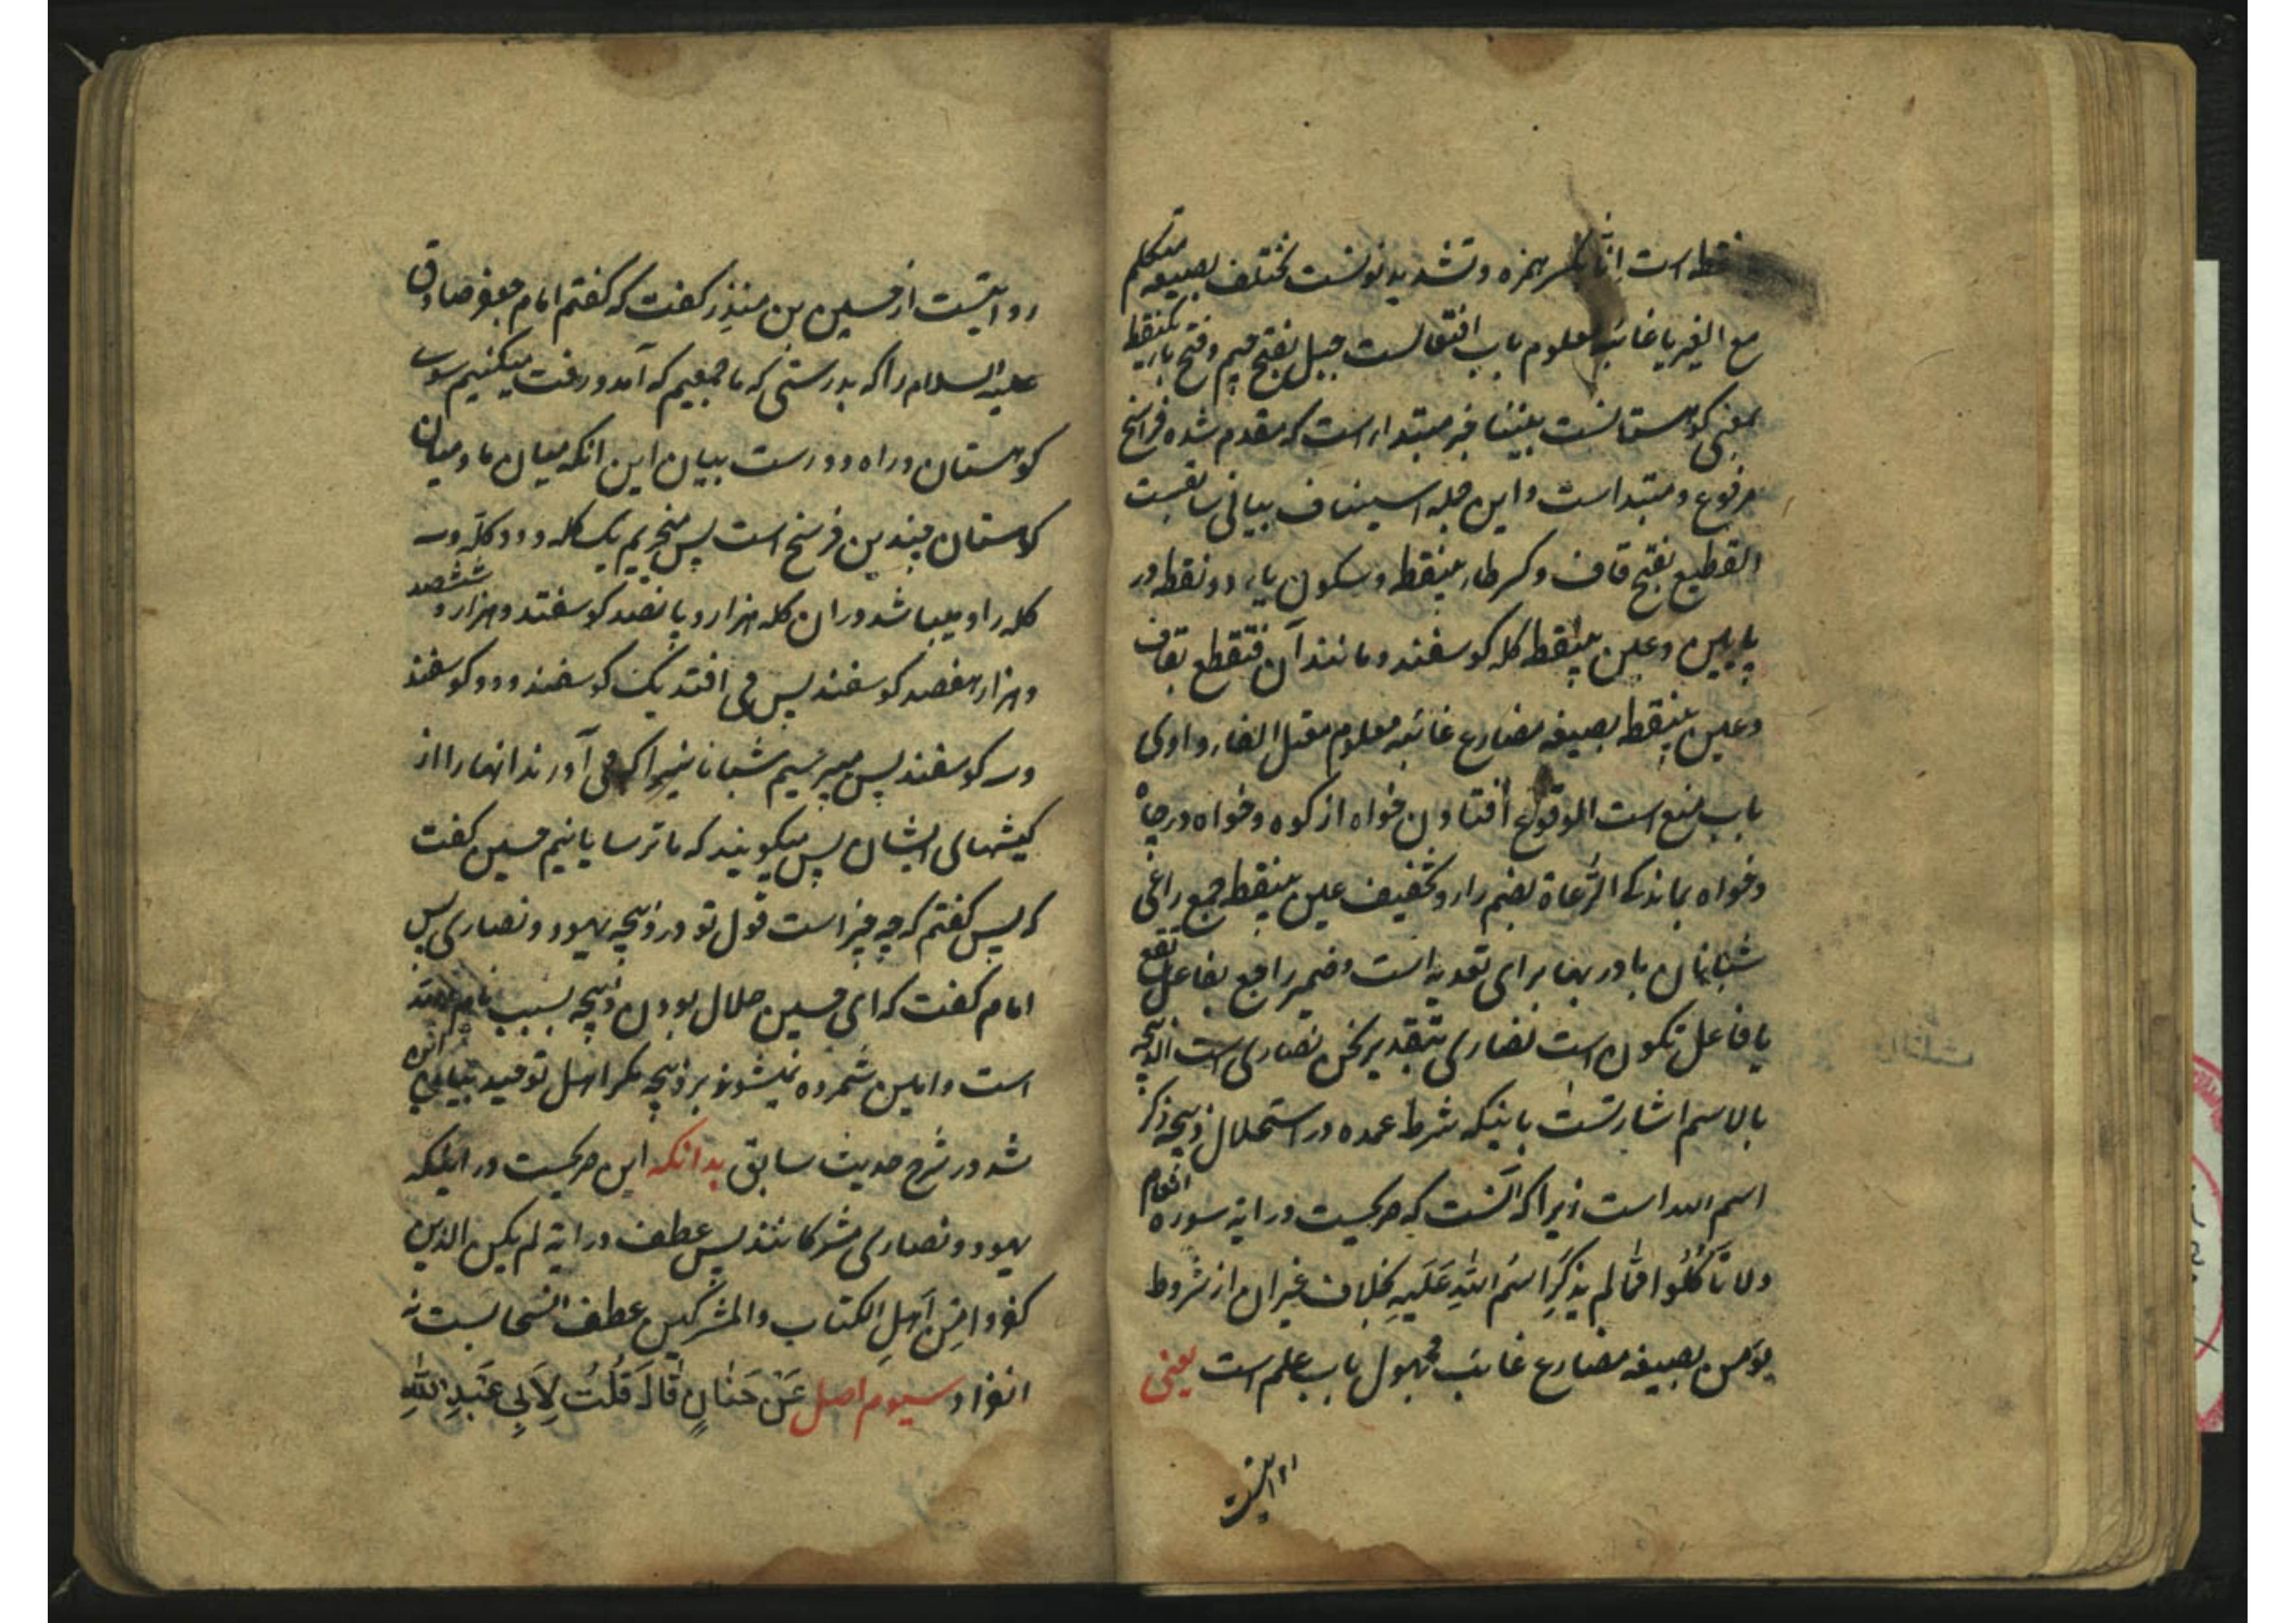 نقطه است انّا بکسر همزه و تشدید نونست نختلف بصیغه متکلم
مع الغیر یا غائبه معلوم باب افتعالست جبل بفتح جیم و فتح باء یکنقطه
بمعنی کوهستانست بیننا خبر مبتداء است که مقدم شده فراسخ
مرفوع و مبتداست و این جمله استیناف بیانی سابقست
القطیع بفتح قاف و کسر طاء بینقطه و سکون یاء دو نقطه در
پایین و عین بینقطه کله کوسفند و مانند آن فتقطع بقاف
و عین بینقطه بصیغه مضارع غائبه معلوم معتل الفاء واوی
باب منع است الوقوع افتادن خواه از کوه و خواه در چاه
و خواه بماندکی الرُّعاة بضم راء و تخفیف عین بینقطه جمع راعی
شبانان با در بها برای تعدیه است و ضمیر راجع بفاعل تقع
یا فاعل تکون است نصاری بتقدیر نحن نصاری است الذبیحه
بالاسم اشارتست باینکه شرط عمده در استحلال ذبیحه ذکر
اسم الله است زیراکه آنست که صریحست در ایة سوره انعام
ولا تَاکُلُوا مِمّا لم یذکَرِ اسْمُ اللهِ عَلَیهِ بخلاف غیر ان از شروط
یؤمن بصیغه مضارع غائب مجهول باب علم است یعنی
روایتست
روایتست از حسین بن منذر کفت که کفتم امام جعفر صادق
علیه السلام را که بدرستی که ما جمعیم که آمد و رفت میکنیم سوی
کوهستان و راه دورست بیان این انکه میان ما و میان
کوهستان چندین فرسخ است پس میخریم یک کله و دو کله و سه
کله را و میباشد در ان کله هزار و پانصد کوسفند و هزار و ششصد
و هزار هفصد کوسفند پس می افتد یک کوسفند و دو کوسفند
و سه کوسفند پس میپرسیم شبانانیرا که می آورند انها را از
کیشهای ایشان پس میکویند که ما ترسایانیم حسین کفت
که پس کفتم که چه چیز است قول تو در ذبیحه یهود و نصاری پس
امام کفت که ای حسین حلال بودن ذبیحه بسبب نام
است و امین شمرده نمیشود بر ذبیحه مکر اهل توحید بیان این
شد در شرح حدیث سابق بدانکه این صریحست در اینکه
یهود و نصاری مشرکانند پس عطف در ایة لم یکن الذین
کفروا مِن اَهلِ الکتاب والمشرکین عطف انسحابست نه
انفراد سیوم اصل عَنْ حَنَانٍ قَالَ قُلْتُ لِاَبِی عَبْدِ اللهِ